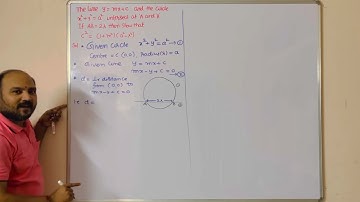 The line y = mx+c and the circle
x²+y²=a² intersects at A and B
If AB=2λ then show that
c² = (1+m²)(a²-λ²)
Given circle x²+y²=a² → ①
Centre = C (0,0), Radius(r) = a
Given line y = mx+c
mx-y+c=0 → ②
d = ⊥r distance
from (0,0) to
mx-y+c=0
i.e d =
A 2λ B